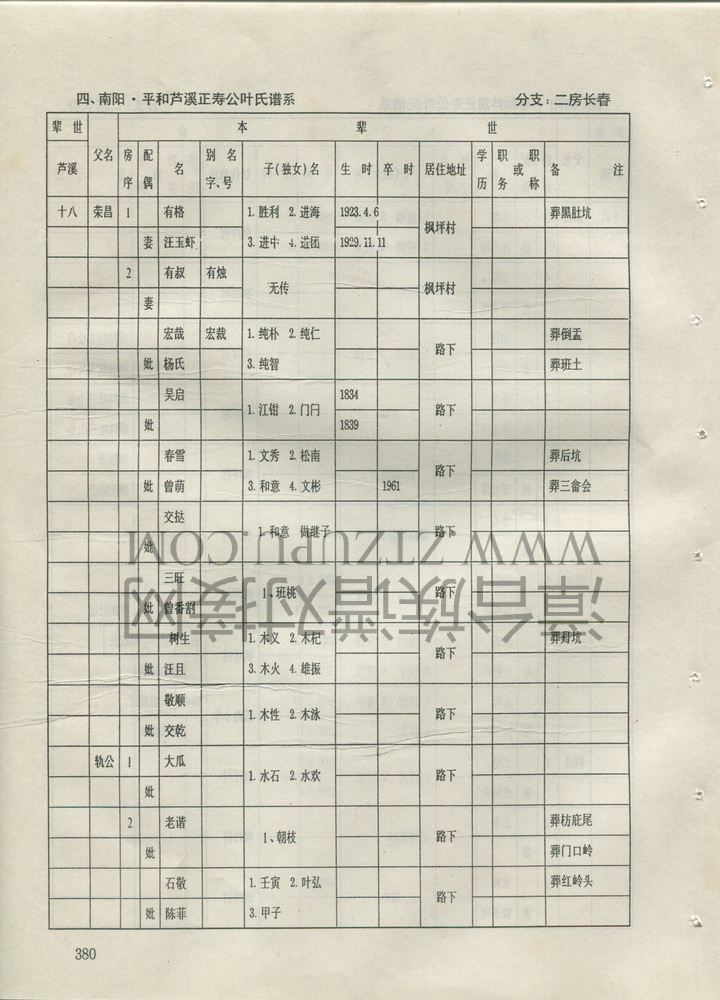 四、南阳·平和芦溪正寿公叶氏谱系 分支：二房长春
辈世 父名 本辈世
芦溪 房序 配偶 名 别名字、号 子(独女)名 生时 卒时 居住地址 学历 职务或职称 备注
十八 荣昌 1 有格 1.胜利 2.进海 1923.4.6 枫坪村 葬黑肚坑
妻 汪玉虾 3.进中 4.进团 1929.11.11
2 有叔 有烛 无传 枫坪村
妻
宏哉 宏裁 1.纯朴 2.纯仁 路下 葬倒盂
妣 杨氏 3.纯智 葬班土
吴启 1.江钳 2.门闩 1834 路下
妣 1839
春雪 1.文秀 2.松南 路下 葬后坑
妣 曾萌 3.和意 4.文彬 1961 葬三畲会
交挞 1.和意 做继子 路下
妣
三旺 1、班桃 路下
妣 曾番割
树生 1.木义 2.木杞 路下 葬月坑
妣 汪且 3.木火 4.雄振
敬顺 1.木性 2.木泳 路下
妣 交乾
轨公 1 大瓜 1.水石 2.水欢 路下
妣
2 老谐 1、朝枝 路下 葬枋庇尾
妣 葬门口岭
石敬 1.壬寅 2.叶弘 路下 葬红岭头
妣 陈菲 3.甲子
380
漳台族谱对接网
WWW.ZTZUPU.COM